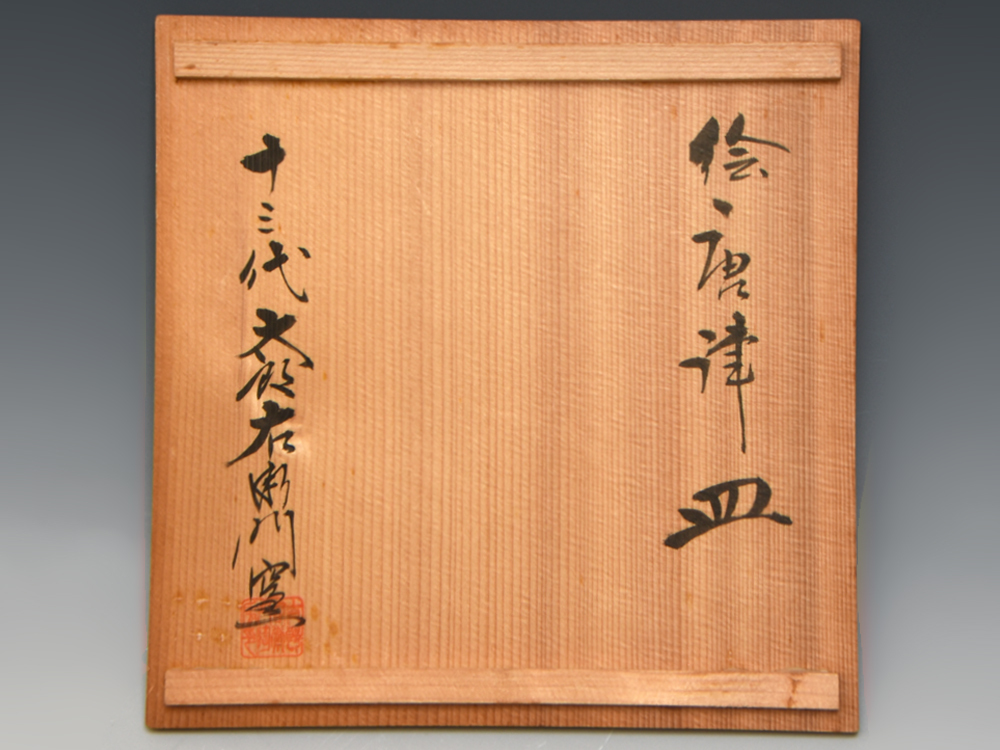 絵唐津皿
十三代太郎右衛門窯